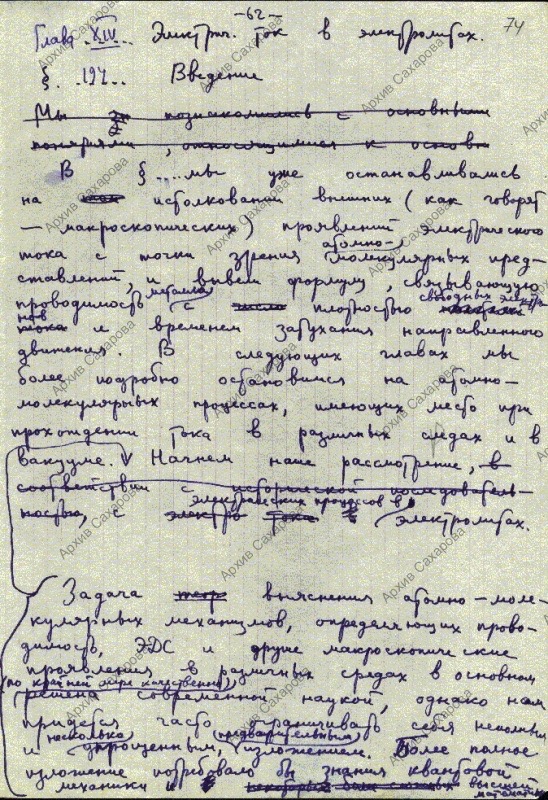 -62-
74
Глава XIV. Электрич. ток в электролитах.
§. 194... Введение
Мы познакомились с основными
понятиями, относящимися к основн
В §.....мы уже останавливались
на истолковании внешних (как говорят
— макроскопических) проявлений электрического
тока с точки зрения атомно-молекулярных пред-
ставлений, и вывели формулу, связывающую
проводимость металла с плотностью свободных
и временем затухания направленного
движения. В следующих главах мы
более подробно остановимся на атомно-
молекулярных процессах, имеющих место при
прохождении тока в различных средах и в
вакууме. Начнем наше рассмотрение, в
соответствии с исторической последователь-
ностью, с электрических процессов в электролитах.
Задача теор выяснения атомно-моле-
кулярных механизмов, определяющих прово-
димость, ЭДС и другие макроскопические
проявления в различных средах в основном
(по крайней мере качественно),
решена современной наукой, однако нам
придется часто ограничивать себя неполным
и несколько упрощенным, (предварительным) изложением. Более полное
изложение потребовало бы знания квантовой
механики и высшей
математики
Архив Сахарова